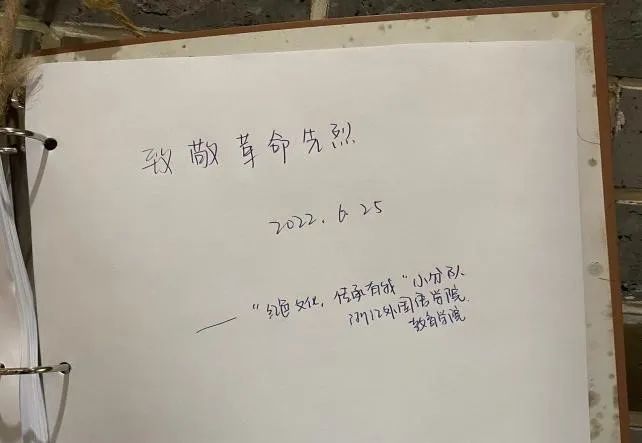 致敬革命先烈
2022.6.25
——“红色文化，传承有我”小分队
浙江外国语学院
教育学院